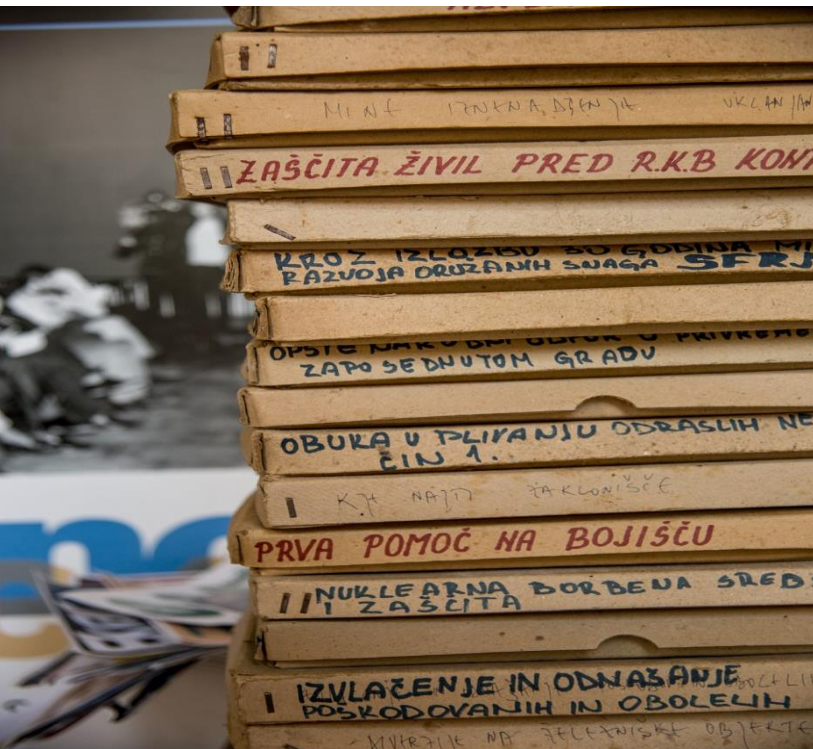 MINE IZNENAĐENJA UKLANJAN
ZAŠČITA ŽIVIL PRED R.K.B KONT
KROZ IZLOŽBU 30 GODINA
RAZVOJA ORUŽANIH SNAGA SFRJ
OPŠTE U
ZAPOSEDNUTOM GRADU
OBUKA U PLIVANJU ODRASLIH NE
ČIN 1.
KJE NAJTI ZAKLONIŠČE
PRVA POMOČ NA BOJIŠČU
NUKLEARNA BORBENA SRED
I ZAŠČITA
IZVLAČENJE IN ODNAŠANJE
POŠKODOVANIH IN OBOLELIH
NA ŽELEZNIŠKE OBJEKTE